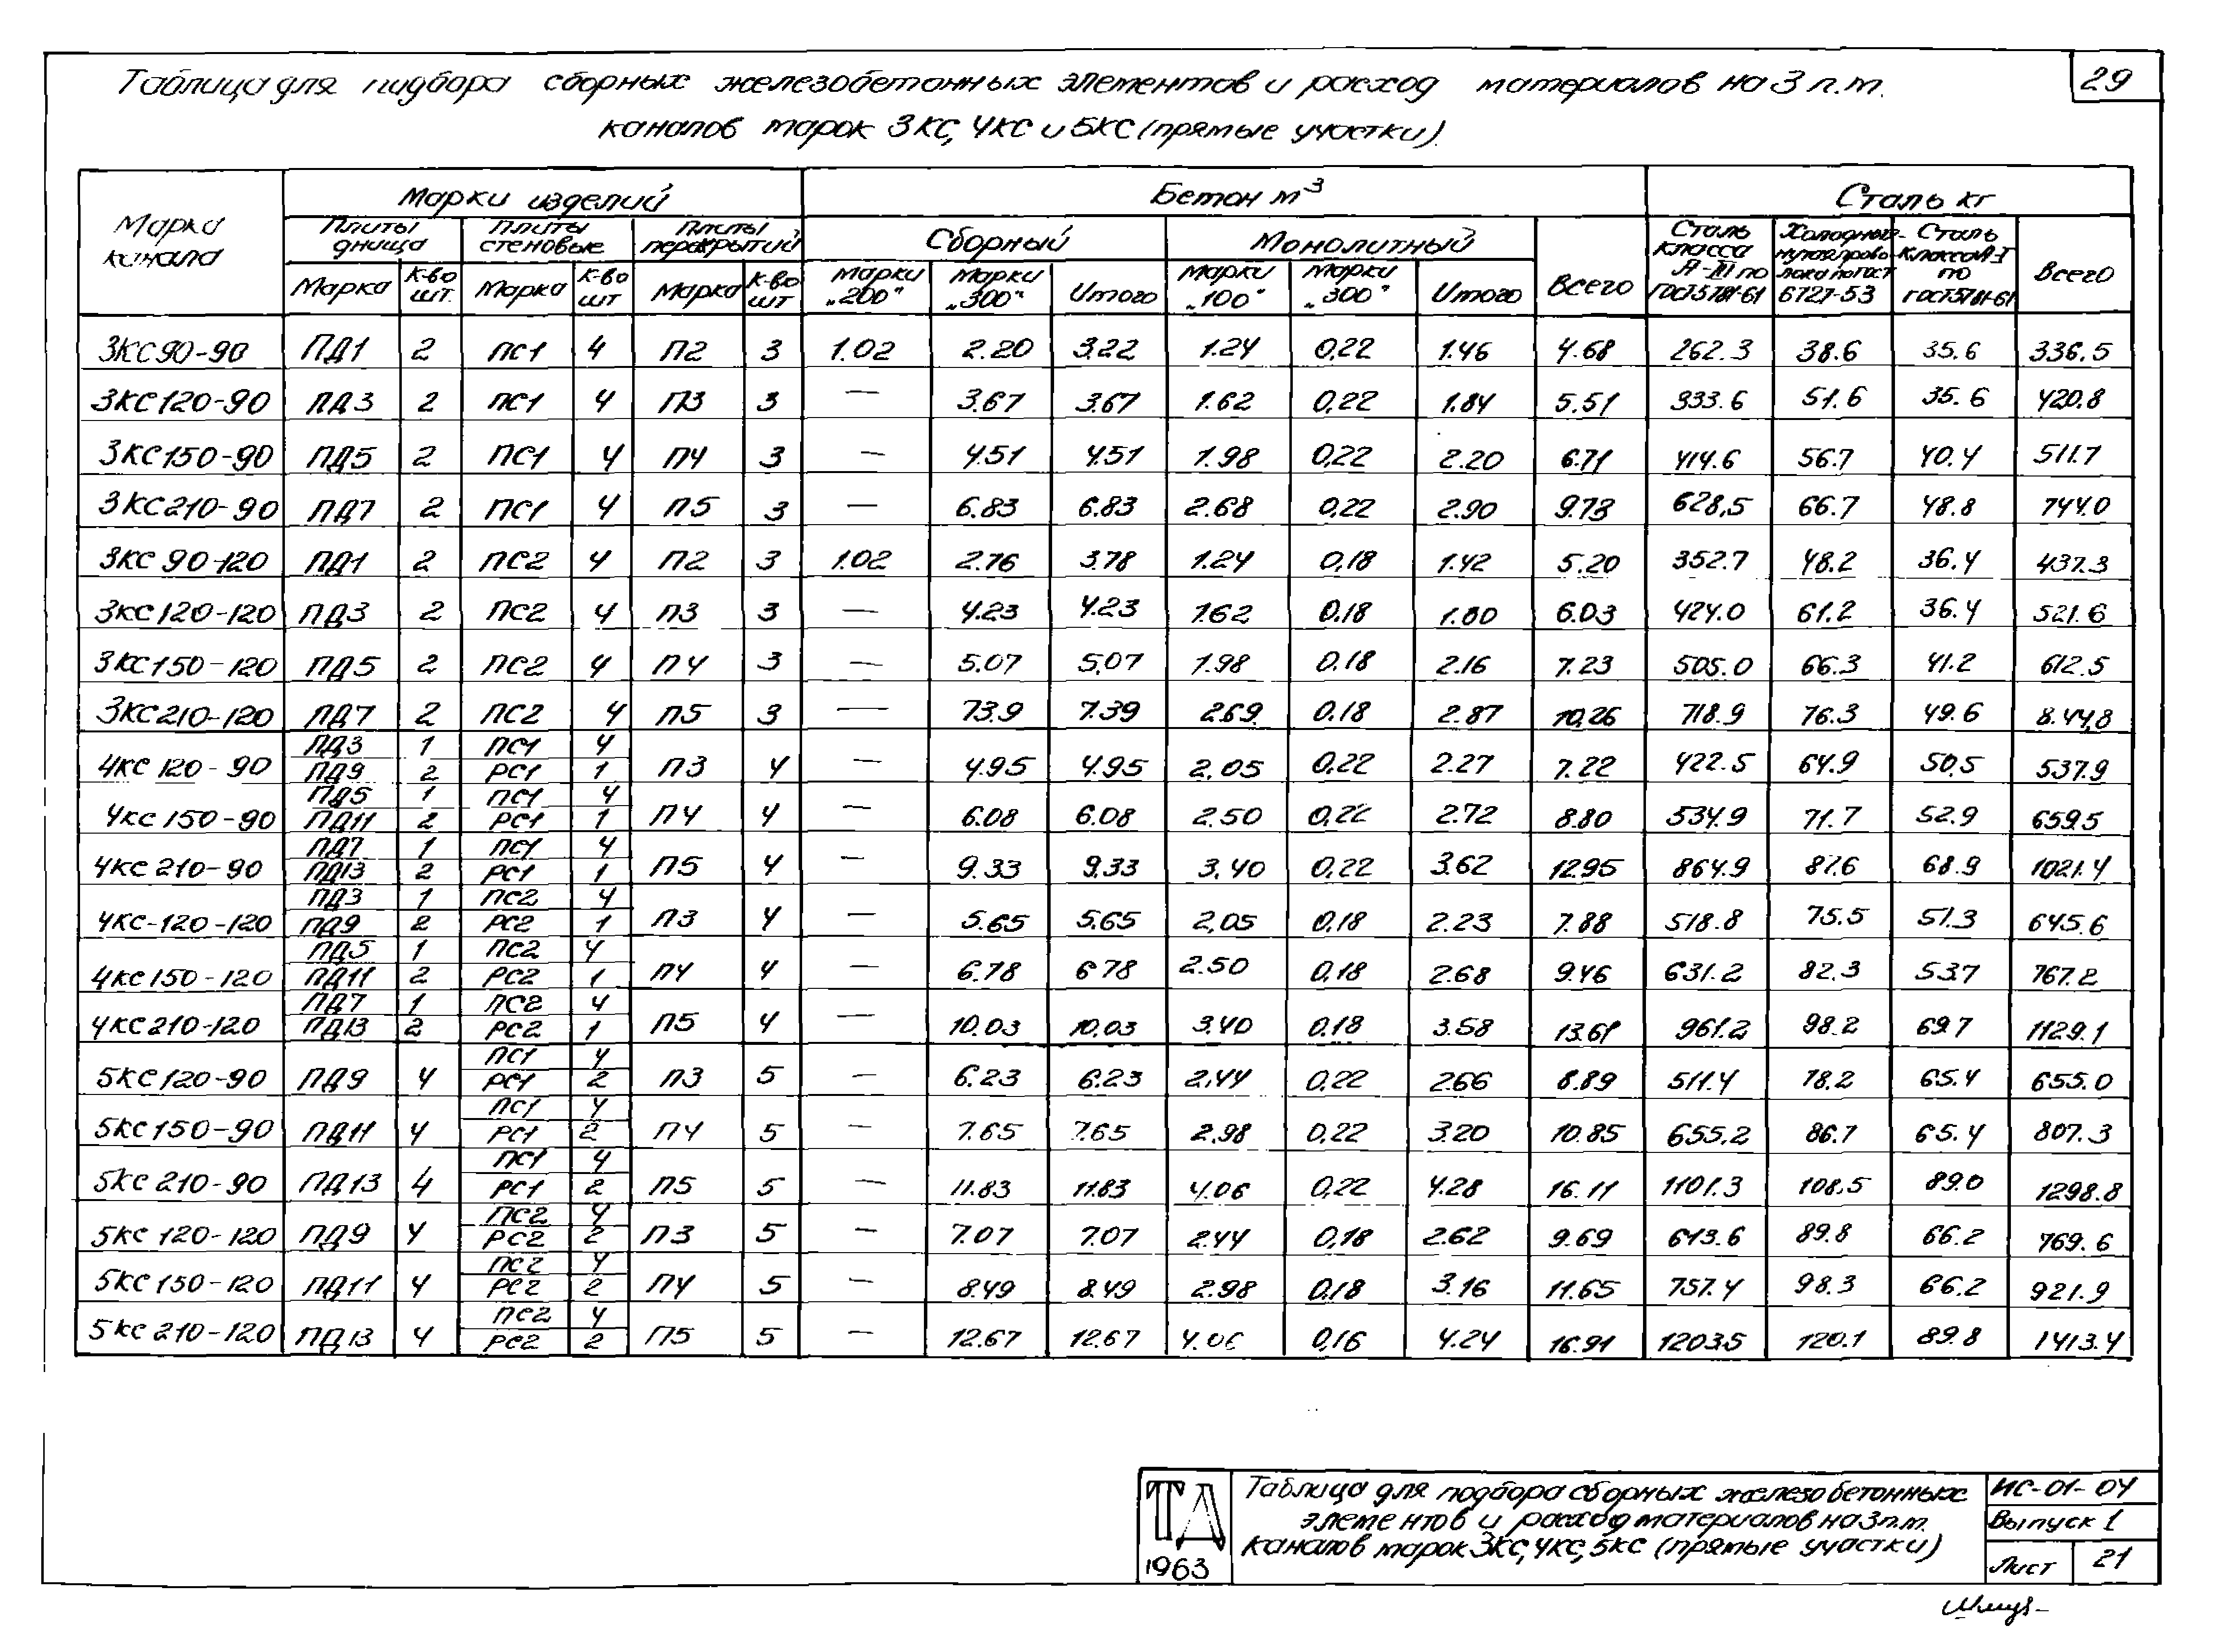 29
Таблица для подбора сборных железобетонных элементов и расход материалов на 3 п.м.
каналов марок 3КС, 4КС и 5КС (прямые участки).
Марка канала | Марки изделий | Бетон м³ | Сталь кг
Плиты днища | Плиты стеновые | Плиты перекрытий | Сборный | Монолитный | Всего | Сталь класса А-III по ГОСТ 5781-61 | Холоднотянутая проволока по ГОСТ 6727-53 | Сталь класса А-I по ГОСТ 5781-61 | Всего
Марка | К-во шт. | Марка | К-во шт | Марка | К-во шт | Марки „200" | Марки „300" | Итого | Марки „100" | Марки „300" | Итого
3КС90-90 | ПД1 | 2 | ПС1 | 4 | П2 | 3 | 1.02 | 2.20 | 3.22 | 1.24 | 0,22 | 1.46 | 4.68 | 262.3 | 38.6 | 35.6 | 336.5
3КС120-90 | ПД3 | 2 | ПС1 | 4 | П3 | 3 | — | 3.67 | 3.67 | 1.62 | 0,22 | 1.84 | 5.51 | 333.6 | 51.6 | 35.6 | 420.8
3КС150-90 | ПД5 | 2 | ПС1 | 4 | П4 | 3 | — | 4.51 | 4.51 | 1.98 | 0,22 | 2.20 | 6.71 | 414.6 | 56.7 | 40.4 | 511.7
3КС210-90 | ПД7 | 2 | ПС1 | 4 | П5 | 3 | — | 6.83 | 6.83 | 2.68 | 0,22 | 2.90 | 9.73 | 628,5 | 66.7 | 48.8 | 744.0
3КС 90-120 | ПД1 | 2 | ПС2 | 4 | П2 | 3 | 1.02 | 2.76 | 3.78 | 1.24 | 0,18 | 1.42 | 5.20 | 352.7 | 48.2 | 36.4 | 437.3
3КС120-120 | ПД3 | 2 | ПС2 | 4 | П3 | 3 | — | 4.23 | 4.23 | 1.62 | 0,18 | 1.80 | 6.03 | 424.0 | 61.2 | 36.4 | 521.6
3КС150-120 | ПД5 | 2 | ПС2 | 4 | П4 | 3 | — | 5.07 | 5,07 | 1.98 | 0,18 | 2.16 | 7.23 | 505.0 | 66.3 | 41.2 | 612.5
3КС210-120 | ПД7 | 2 | ПС2 | 4 | П5 | 3 | — | 73.9 | 7.39 | 2.69 | 0,18 | 2.87 | 10,26 | 718.9 | 76.3 | 49.6 | 8.44,8
4КС 120-90 | ПД3 | 1 | ПС1 | 4 | П3 | 4 | — | 4.95 | 4.95 | 2,05 | 0,22 | 2.27 | 7.22 | 422.5 | 64.9 | 50,5 | 537.9
ПД9 | 2 | РС1 | 1
4КС 150-90 | ПД5 | 1 | ПС1 | 4 | П4 | 4 | — | 6.08 | 6.08 | 2.50 | 0,22 | 2.72 | 8.80 | 534.9 | 71.7 | 52.9 | 659.5
ПД11 | 2 | РС1 | 1
4КС 210-90 | ПД7 | 1 | ПС1 | 4 | П5 | 4 | — | 9.33 | 9,33 | 3,40 | 0,22 | 3.62 | 12.95 | 864.9 | 87.6 | 68.9 | 1021.4
ПД13 | 2 | РС1 | 1
4КС-120-120 | ПД3 | 1 | ПС2 | 4 | П3 | 4 | — | 5.65 | 5.65 | 2,05 | 0,18 | 2.23 | 7.88 | 518.8 | 75.5 | 51.3 | 645.6
ПД9 | 2 | РС2 | 1
4КС150-120 | ПД5 | 1 | ПС2 | 4 | П4 | 4 | — | 6.78 | 6 78 | 2.50 | 0,18 | 2.68 | 9.46 | 631.2 | 82.3 | 53.7 | 767.2
ПД11 | 2 | РС2 | 1
4КС210-120 | ПД7 | 1 | ПС2 | 4 | П5 | 4 | — | 10.03 | 10,03 | 3.40 | 0,18 | 3.58 | 13.61 | 961.2 | 98.2 | 69.7 | 1129.1
ПД13 | 2 | РС2 | 1
5КС120-90 | ПД9 | 4 | ПС1 | 4 | П3 | 5 | — | 6.23 | 6.23 | 2,44 | 0,22 | 2.66 | 8.89 | 511.4 | 78.2 | 65.4 | 655.0
РС1 | 2
5КС150-90 | ПД11 | 4 | ПС1 | 4 | П4 | 5 | — | 7.65 | 7.65 | 2,98 | 0,22 | 3.20 | 10.85 | 655.2 | 86.7 | 65.4 | 807.3
РС1 | 2
5КС 210-90 | ПД13 | 4 | ПС1 | 4 | П5 | 5 | — | 11.83 | 11.83 | 4.06 | 0,22 | 4.28 | 16.11 | 1101.3 | 108,5 | 89.0 | 1298.8
РС1 | 2
5КС 120-120 | ПД9 | 4 | ПС2 | 4 | П3 | 5 | — | 7.07 | 7.07 | 2.44 | 0,18 | 2.62 | 9.69 | 613.6 | 89.8 | 66.2 | 769.6
РС2 | 2
5КС 150-120 | ПД11 | 4 | ПС2 | 4 | П4 | 5 | — | 8.49 | 8.49 | 2.98 | 0,18 | 3.16 | 11.65 | 757.4 | 98.3 | 66.2 | 921.9
РС2 | 2
5КС 210-120 | ПД13 | 4 | ПС2 | 4 | П5 | 5 | — | 12.67 | 12.67 | 4.06 | 0,16 | 4.24 | 16.91 | 1203.5 | 120.1 | 89.8 | 1413.4
РС2 | 2
ТД
1963
Таблица для подбора сборных железобетонных
элементов и расход материалов на 3 п.м.
каналов марок 3КС, 4КС, 5КС (прямые участки)
ИС-01-04
Выпуск 1
Лист 21